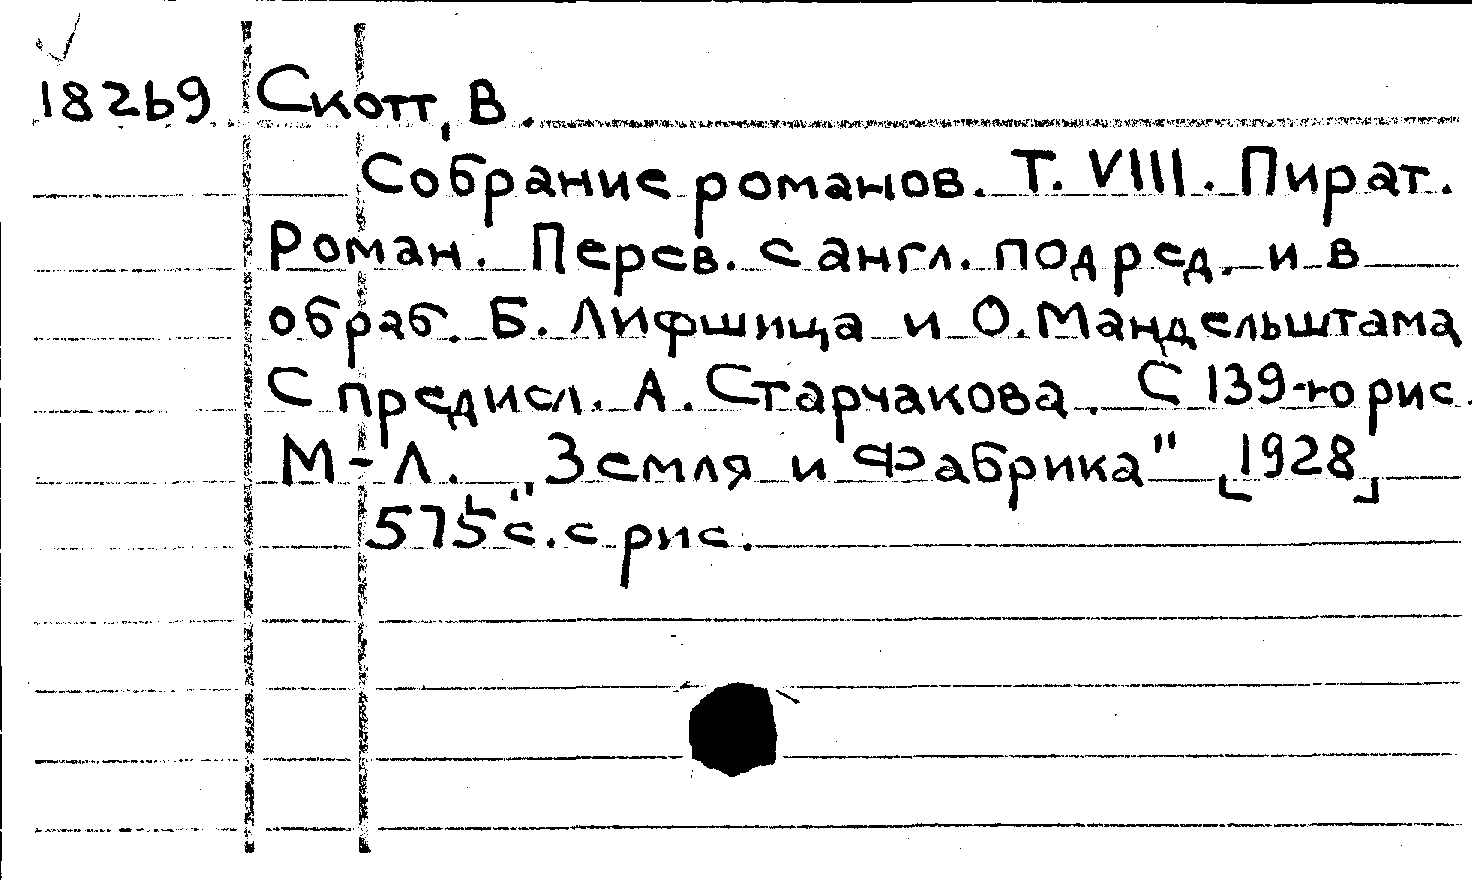 18269 Скотт, В.
Собрание романов. Т. VIII. Пират.
Роман. Перев. с англ. под ред. и в
обраб. Б. Лифшица и О. Мандельштама
С предисл. А. Старчакова. С 139-ю рис.
М-Л. „Земля и Фабрика" [1928]
575 с. с рис.